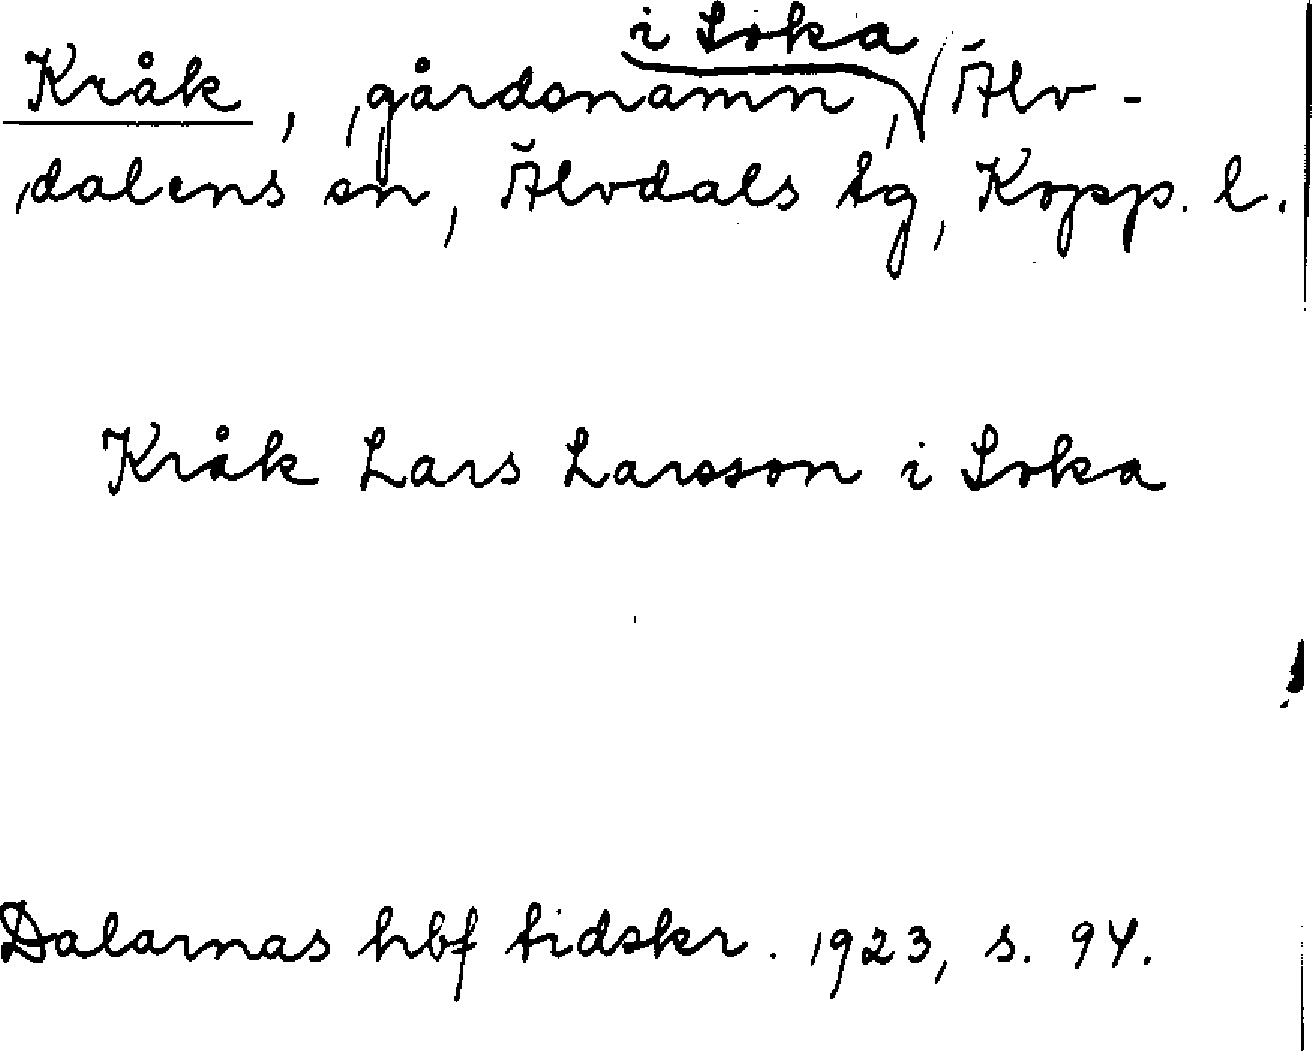 i Loka
Kråk, gårdsnamn, Älv-
dalens sn, Älvdals tg, Kopp. l.
Kråk Lars Larsson i Loka
Dalarnas hbf tidskr. 1923, s. 94.